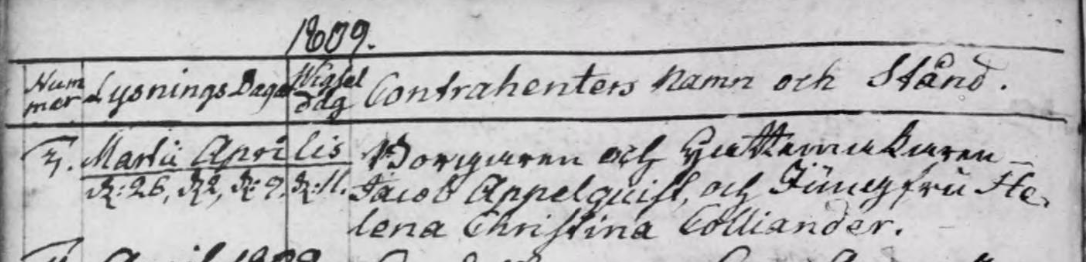 1809.
Nummer Lysnings Dagar Wigsel dag Contrahenters Namn och Stånd.
3. Martii Aprilis Borgaren och Hattemakaren
d: 26, d 2, d: 9, d: 11. Jacob Appelquist, och Jungfru He-
lena Christina Colliander.
April 1809